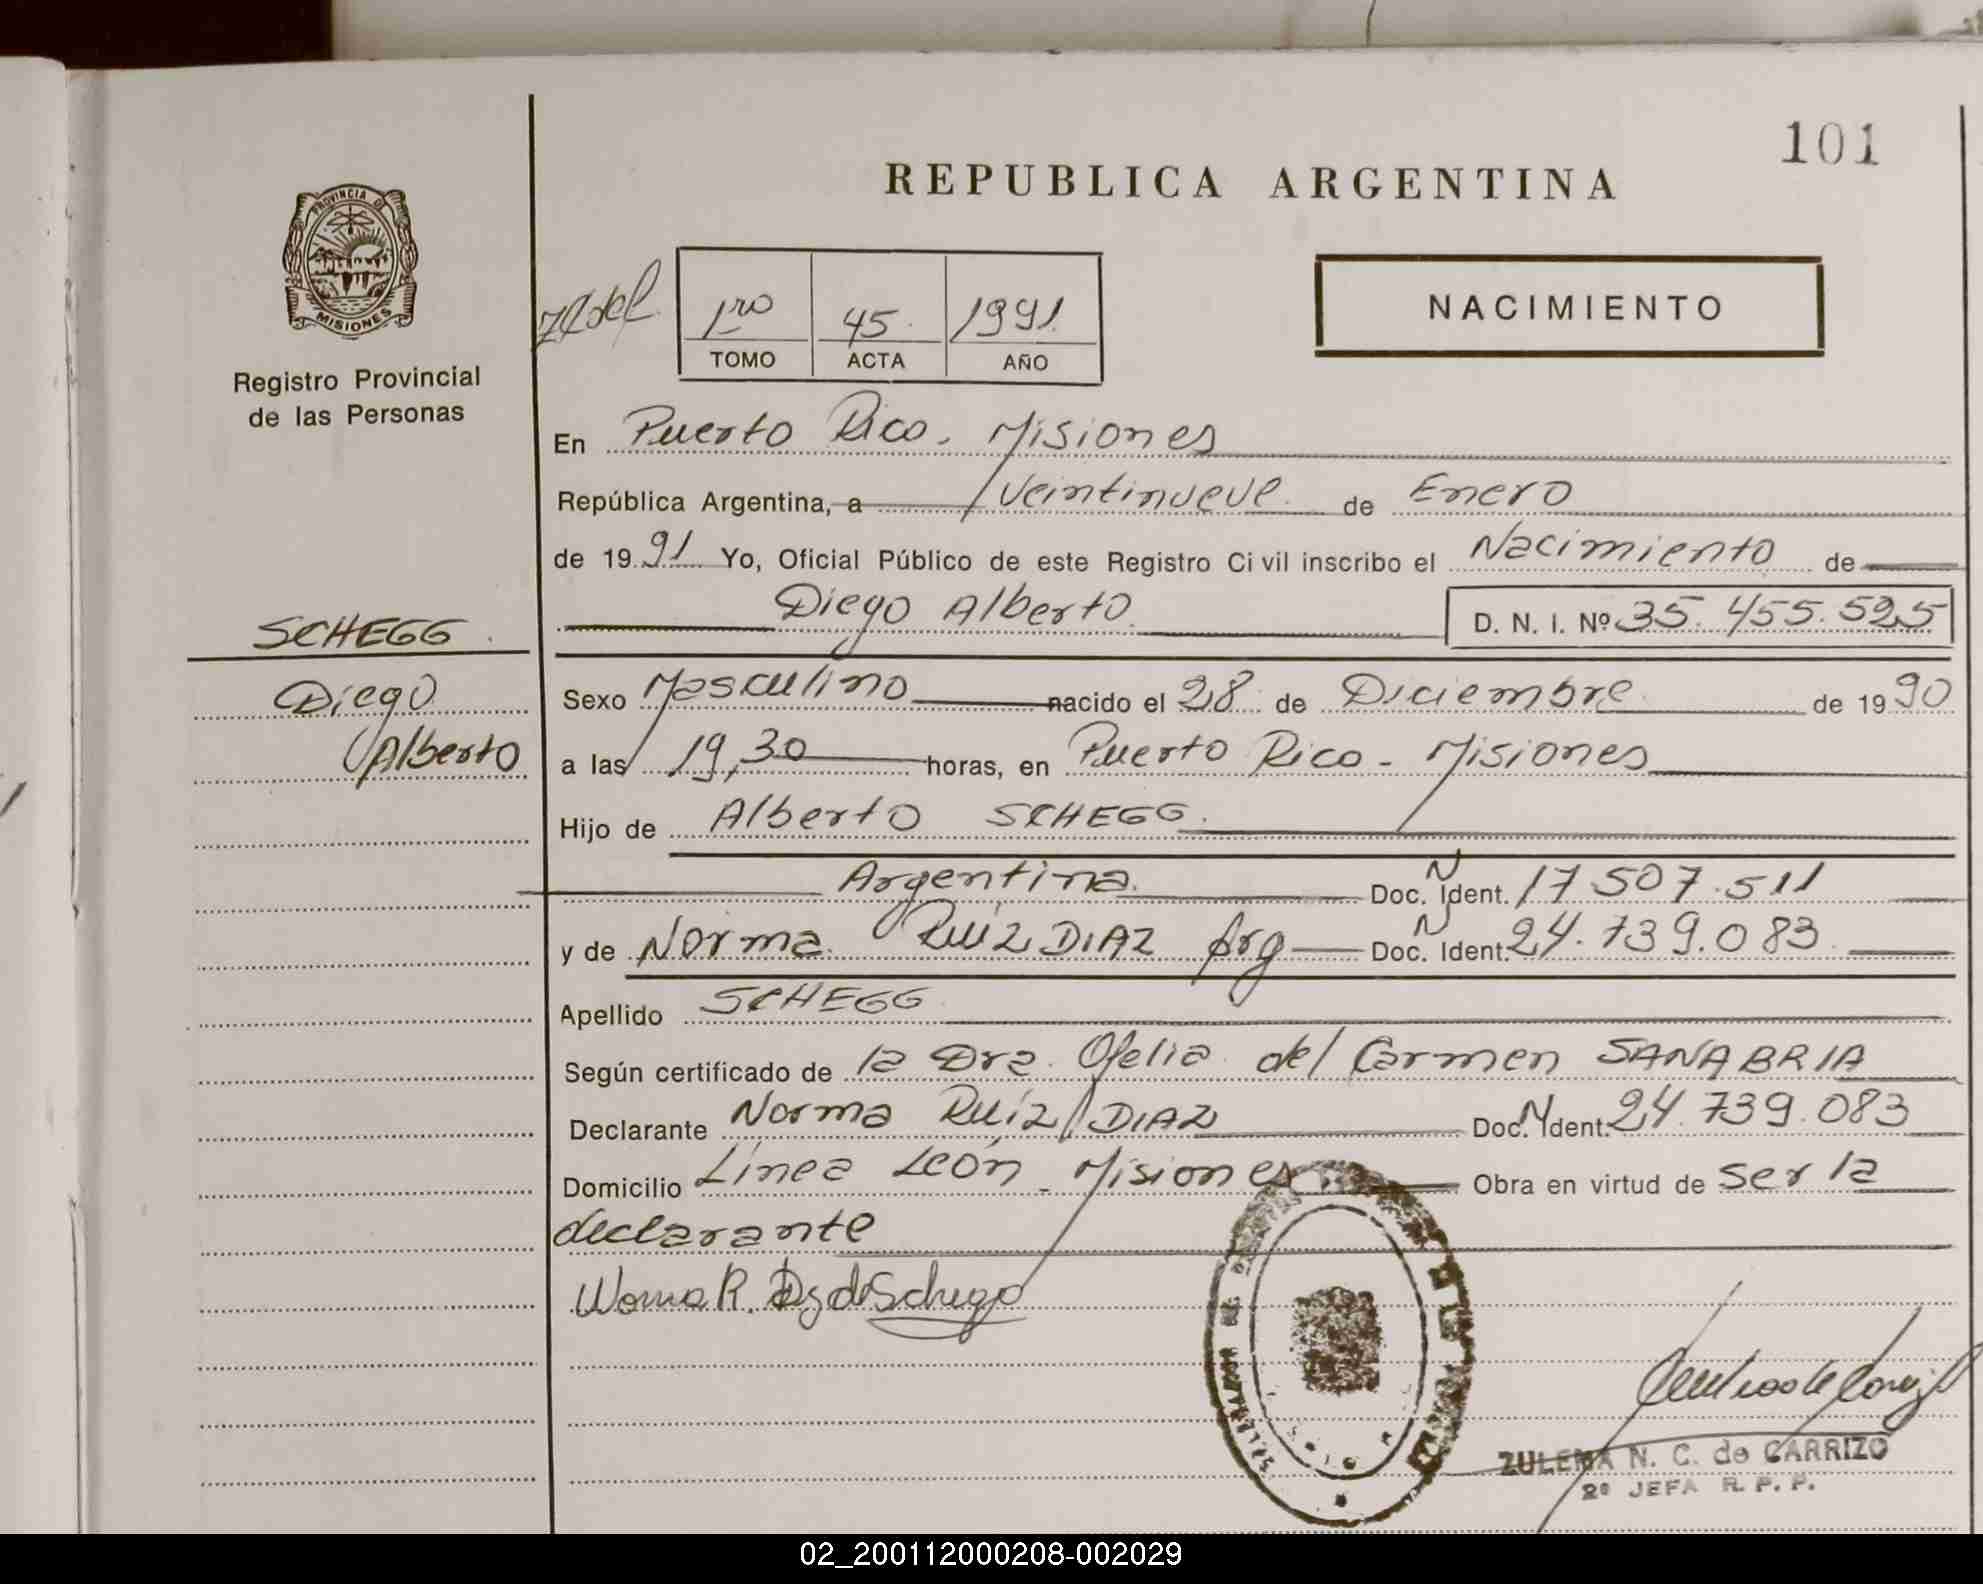 101
REPUBLICA ARGENTINA
PROVINCIA DE
MISIONES
Registro Provincial
de las Personas
1ro 45 1991
TOMO ACTA AÑO
NACIMIENTO
En Puerto Rico. Misiones
República Argentina, a Veintinueve de Enero
de 1991 Yo, Oficial Público de este Registro Civil inscribo el Nacimiento de
Diego Alberto. D. N. I. Nº 35.455.525
SCHEGG.
Diego
Alberto
Sexo Masculino nacido el 28 de Diciembre de 1990
a las 19,30 horas, en Puerto Rico - Misiones
Hijo de Alberto SCHEGG.
Argentina. Doc. N Ident. 17 507.511
y de Norma Ruíz DIAZ Arg Doc. N Ident. 24.739.083
Apellido SCHEGG
Según certificado de la Dra. Ofelia del Carmen SANABRIA
Declarante Norma Ruíz DIAZ Doc. N Ident. 24.739.083
Domicilio Línea León - Misiones Obra en virtud de ser la
declarante
ZULEMA N. C. de CARRIZO
2º JEFA R. P. P.
02_200112000208-002029